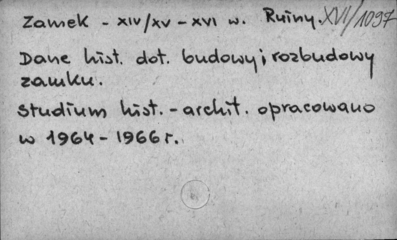 Zamek - XIV/XV - XVI w. Ruiny. XVI/1097
Dane hist. dot. budowy i rozbudowy
zamku.
Studium hist. - archit. opracowano
w 1964 - 1966 r.